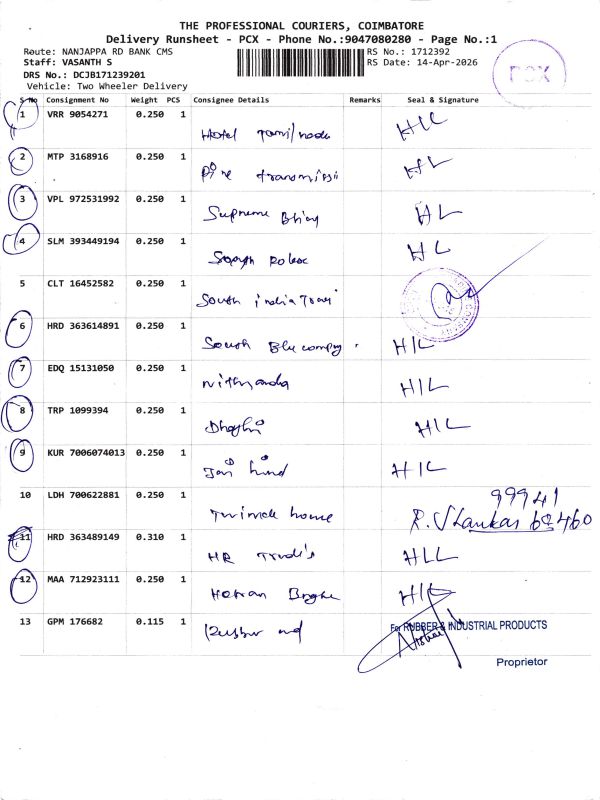 THE PROFESSIONAL COURIERS, COIMBATORE
Delivery Runsheet - PCX - Phone No.:9047080280 - Page No.:1
Route: NANJAPPA RD BANK CMS
RS No.: 1712392
Staff: VASANTH S
RS Date: 14-Apr-2026
DRS No.: DCJB171239201
Vehicle: Two Wheeler Delivery
PCX
S No Consignment No Weight PCS Consignee Details Remarks Seal & Signature
1 VRR 9054271 0.250 1 Hotel Tamilnadu H/L
2 MTP 3168916 0.250 1 H/L
3 VPL 972531992 0.250 1 Supreme H/L
4 SLM 393449194 0.250 1 H/L
5 CLT 16452582 0.250 1 South india
6 HRD 363614891 0.250 1 South Blu H/L
7 EDQ 15131050 0.250 1 H/L
8 TRP 1099394 0.250 1 H/L
9 KUR 7006074013 0.250 1 Jai hind H/L
10 LDH 700622881 0.250 1 home 99941
R. 62460
11 HRD 363489149 0.310 1 HR H/L
12 MAA 712923111 0.250 1 H/L
13 GPM 176682 0.115 1 For RUBBER & INDUSTRIAL PRODUCTS
Proprietor